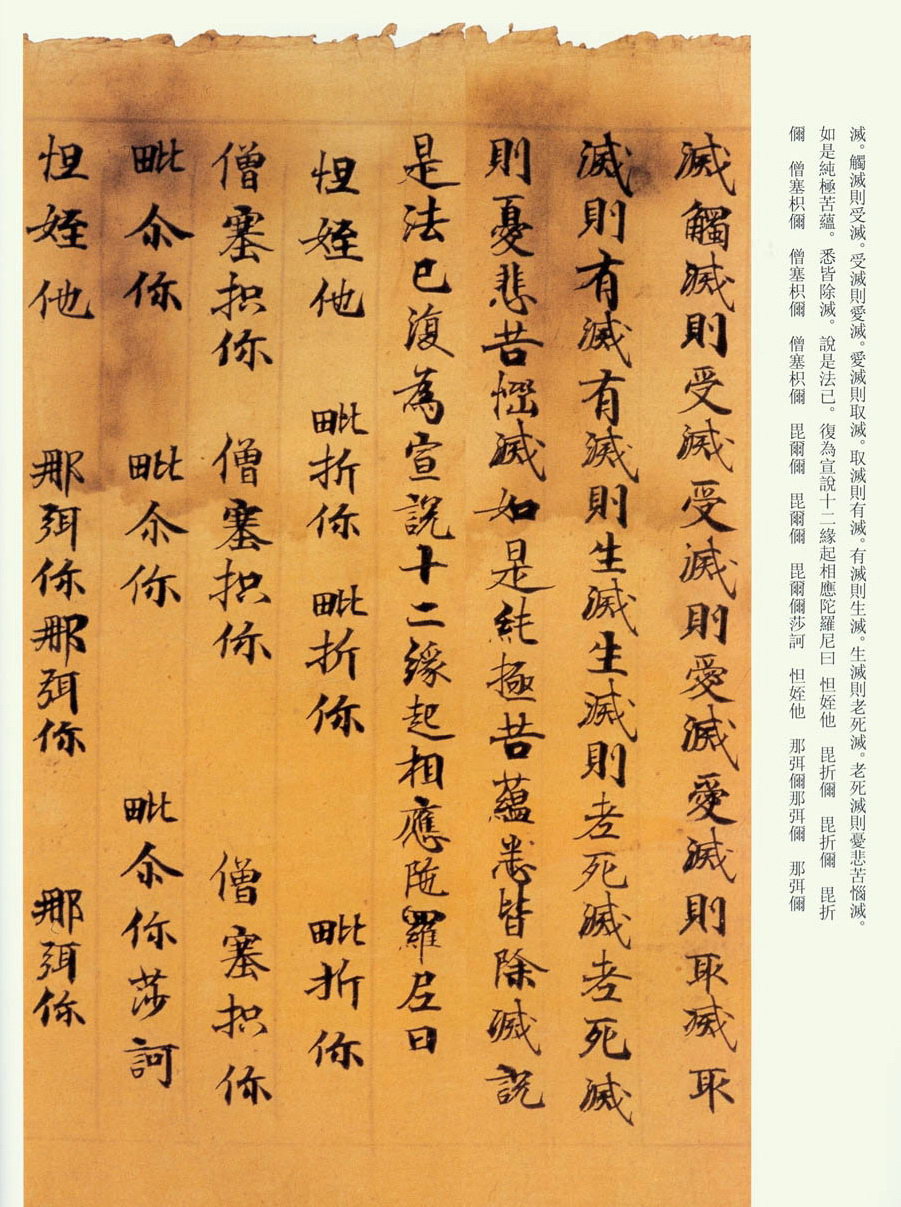 滅。觸滅則受滅。受滅則愛滅。愛滅則取滅。取滅則有滅。有滅則生滅。生滅則老死滅。老死滅則憂悲苦惱滅。
如是純極苦蘊。悉皆除滅。說是法已。復為宣說十二緣起相應陀羅尼曰 怛姪他 毘折儞 毘折儞 毘折
儞 僧塞枳儞 僧塞枳儞 僧塞枳儞 毘爾儞 毘爾儞 毘爾儞莎訶 怛姪他 那弭儞那弭儞 那弭儞
滅觸滅則受滅受滅則愛滅愛滅則取滅取
滅則有滅有滅則生滅生滅則老死滅老死滅
則憂悲苦惱滅如是純極苦蘊悉皆除滅說
是法已復為宣說十二緣起相應陁羅尼曰
怛姪他 毗折你 毗折你 毗折你
僧塞抧你 僧塞抧你 僧塞抧你
毗尒你 毗尒你 毗尒你莎訶
怛姪他 那弭你那弭你 那弭你